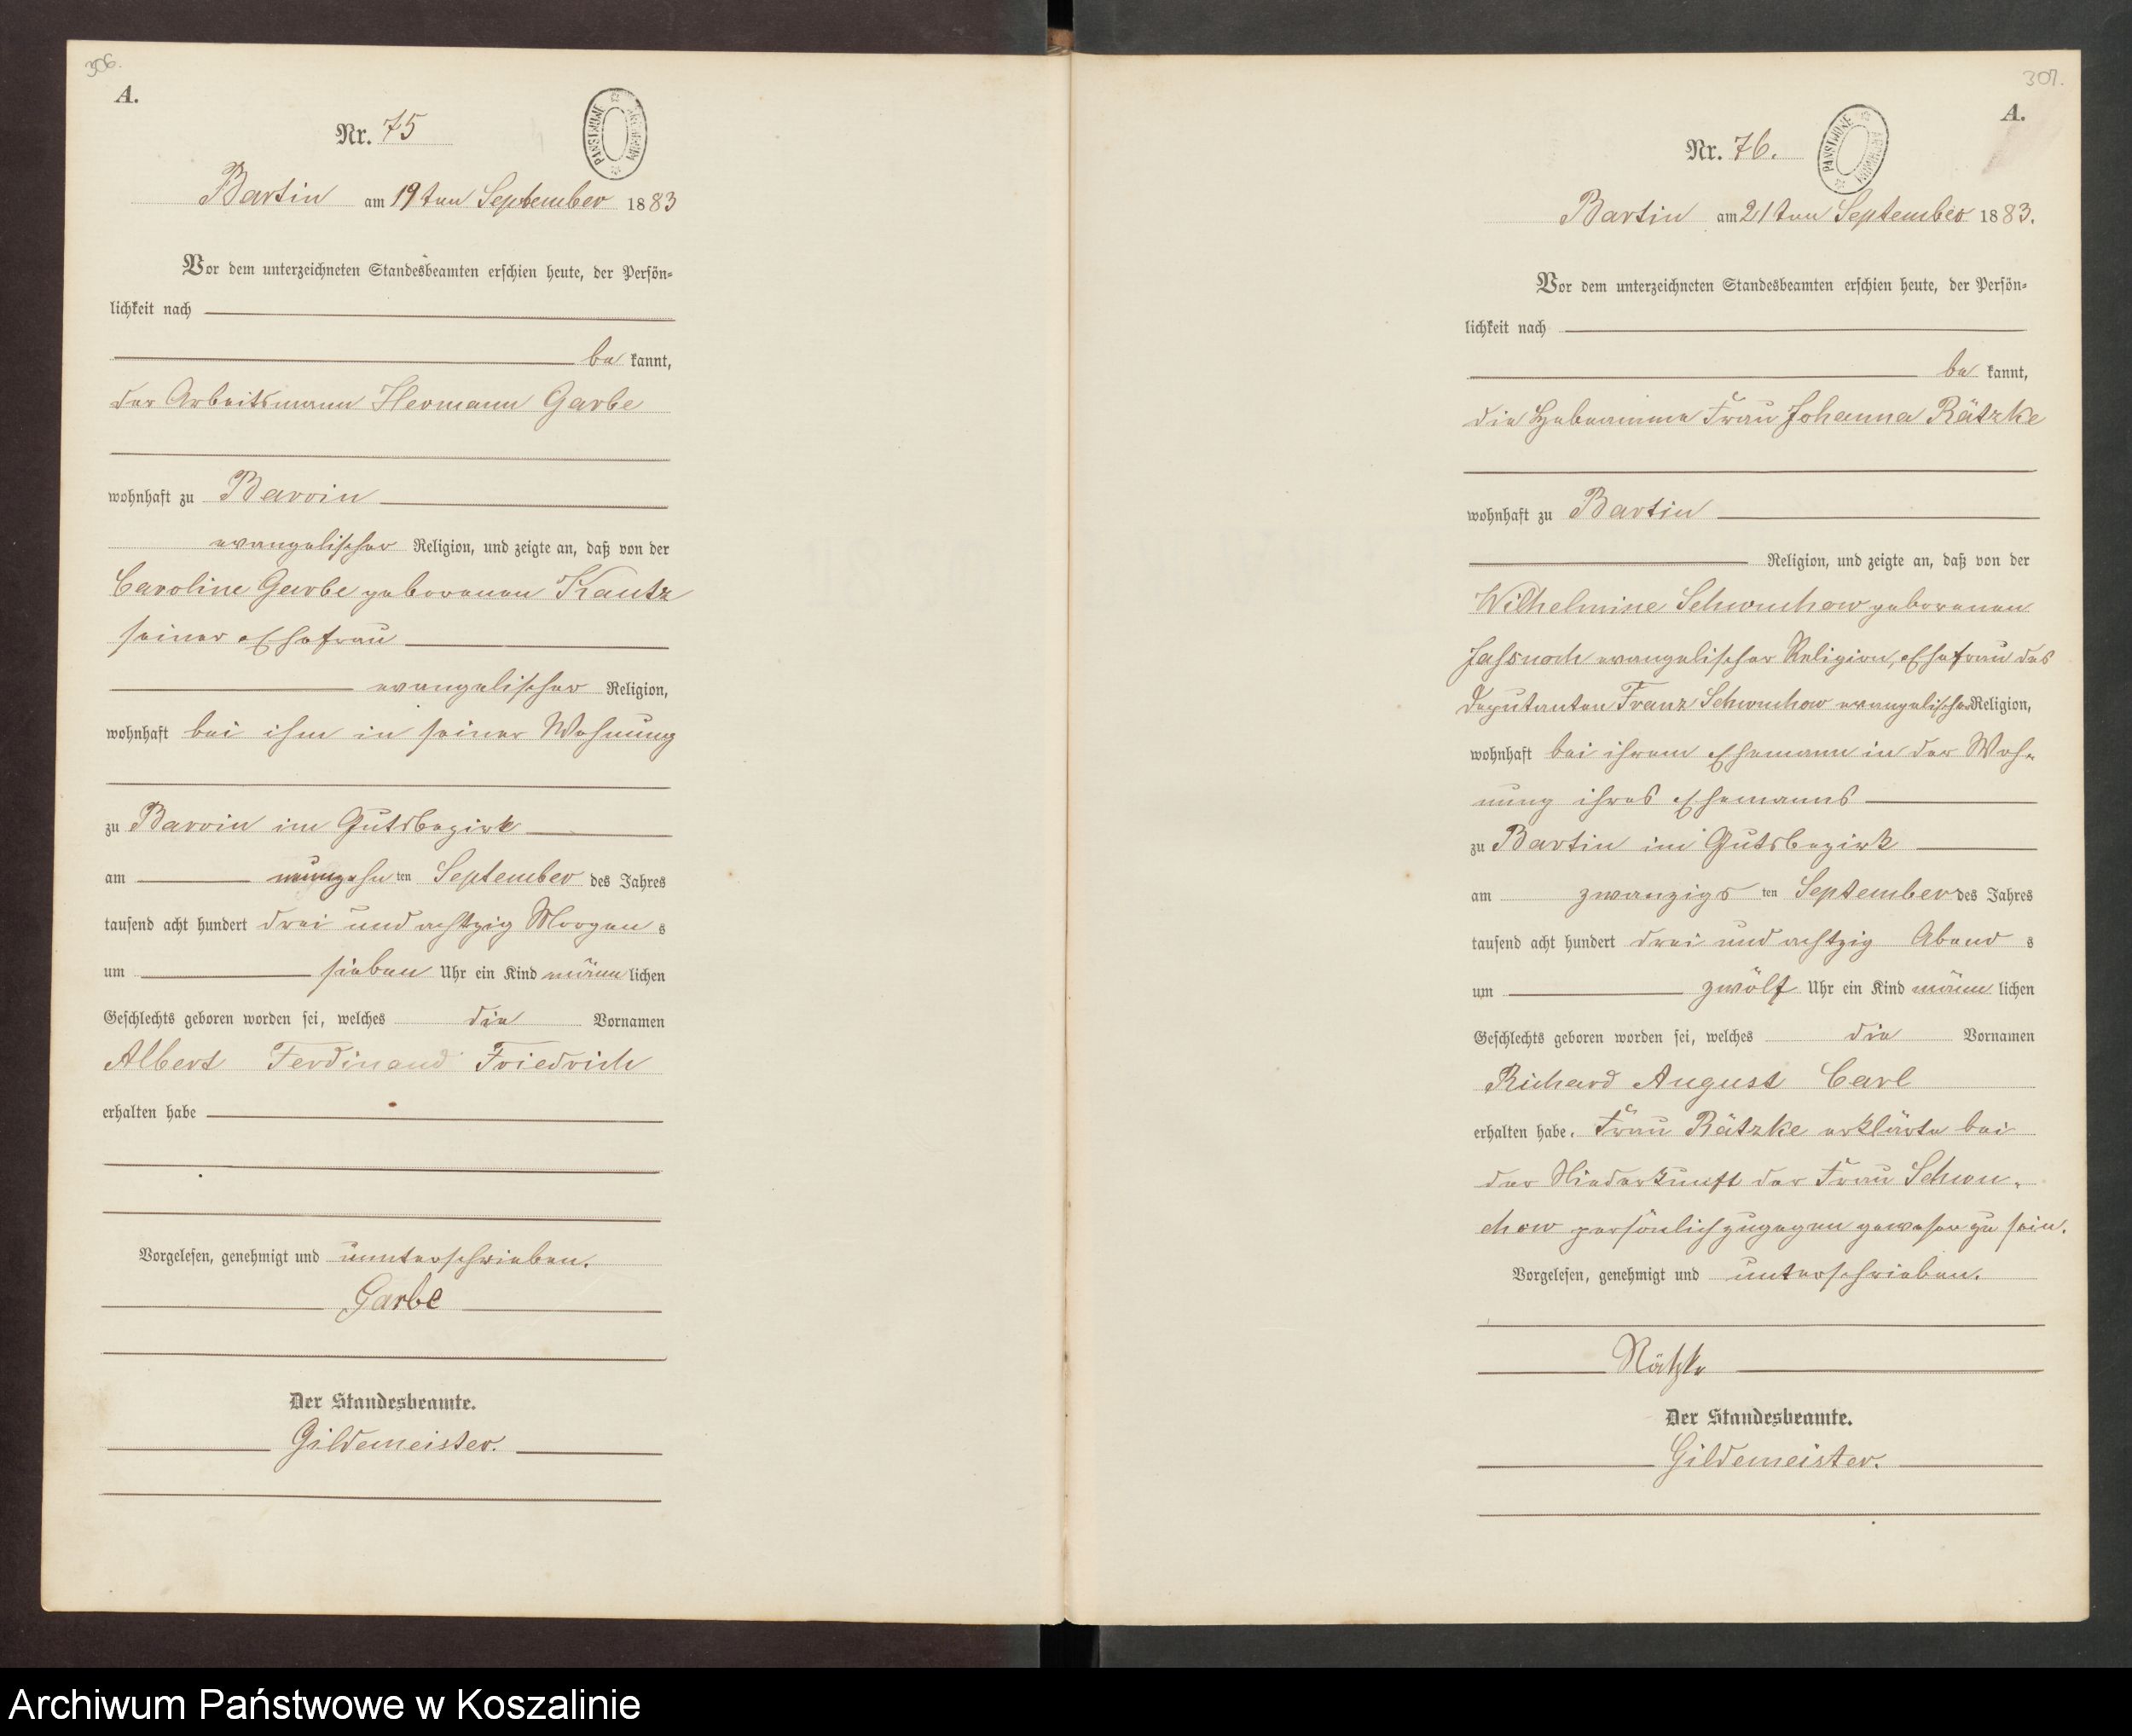 306.
A.
Nr. 75
PANSTWOWE ARCHIWUM
Bartin am 19ten September 1883
Vor dem unterzeichneten Standesbeamten erschien heute, der Persön=
lichkeit nach
be kannt,
der Arbeitsmann Hermann Garbe
wohnhaft zu Barvin
evangelischer Religion, und zeigte an, daß von der
Caroline Garbe geborenen Kautz
seiner Ehefrau
evangelischer Religion,
wohnhaft bei ihm in seiner Wohnung
zu Barvin im Gutsbezirk
am neunzehnten September des Jahres
tausend acht hundert drei und achtzig Morgens
um sieben Uhr ein Kind männlichen
Geschlechts geboren worden sei, welches die Vornamen
Albert Ferdinand Friedrich
erhalten habe
Vorgelesen, genehmigt und unterschrieben.
Garbe
Der Standesbeamte.
Gildemeister.
307.
A.
Nr. 76.
PANSTWOWE ARCHIWUM
Bartin am 21ten September 1883.
Vor dem unterzeichneten Standesbeamten erschien heute, der Persön=
lichkeit nach
be kannt,
die Hebeamme Frau Johanna Rätzke
wohnhaft zu Bartin
Religion, und zeigte an, daß von der
Wilhelmine Schwuchow geborenen
evangelischer Religion, Ehefrau des
Deputanten Franz Schwuchow evangelischer Religion,
wohnhaft bei ihrem Ehemann in der Woh=
nung ihres Ehemanns
zu Bartin im Gutsbezirk
am zwanzigsten September des Jahres
tausend acht hundert drei und achtzig Abends
um zwölf Uhr ein Kind männlichen
Geschlechts geboren worden sei, welches die Vornamen
Richard August Carl
erhalten habe. Frau Rätzke erklärte bei
der Niederkunft der Frau Schwu=
chow persönlich zugegen gewesen zu sein.
Vorgelesen, genehmigt und unterschrieben.
Rätzke
Der Standesbeamte.
Gildemeister.
Archiwum Państwowe w Koszalinie